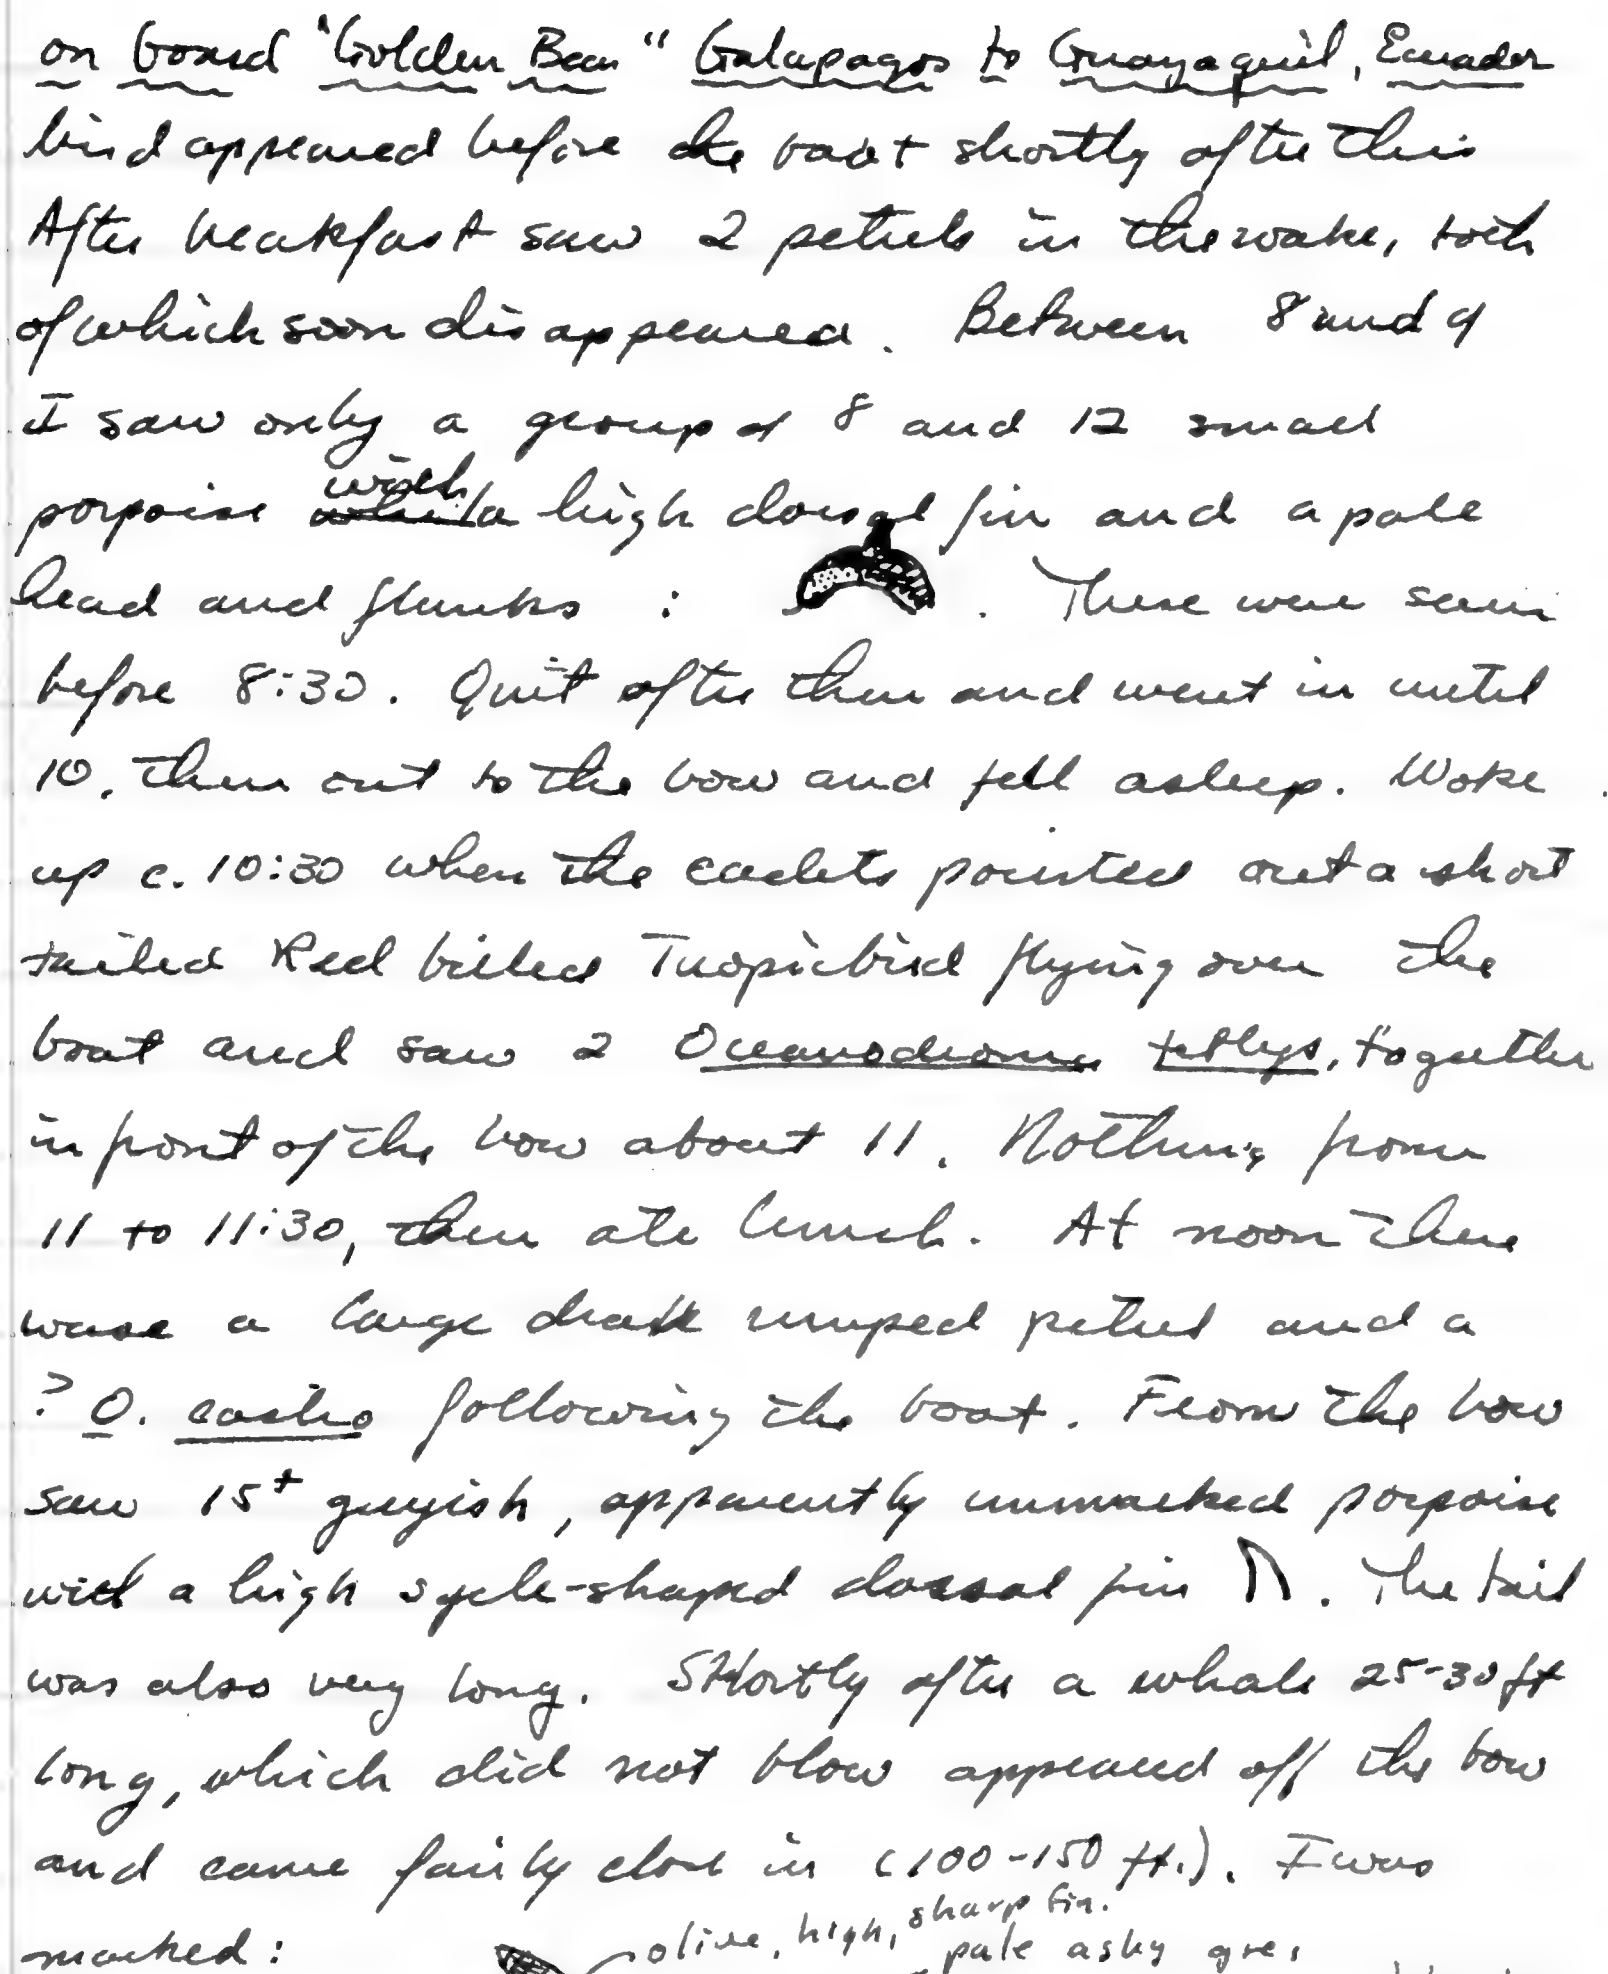 on board "Golden Bear" Galapagos to Guayaquil, Ecuador
bird appeared before the boat shortly after this
After breakfast saw 2 petrels in the wake, both
of which soon disappeared. Between 8 and 9
I saw only a group of 8 and 12 small
porpoise with a high dorsal fin and a pale
head and flanks : . These were seen
before 8:30. Quit after then and went in until
10. then out to the bow and fell asleep. Woke
up c. 10:30 when the cadets pointed out a short
tailed Red billed Tropicbird flying over the
boat and saw 2 Oceanodroma tethys, together
in front of the bow about 11. Nothing from
11 to 11:30, then ate lunch. At noon there
was a large dark rumped petrel and a
? O. castro following the boat. From the bow
saw 15+ greyish, apparently unmarked porpoise
with a high sycle-shaped dorsal fin . The tail
was also very long. Shortly after a whale 25-30 ft
long, which did not blow appeared off the bow
and came fairly close in (100-150 ft.). I was
marked:
olive, high, sharp fin.
pale ashy